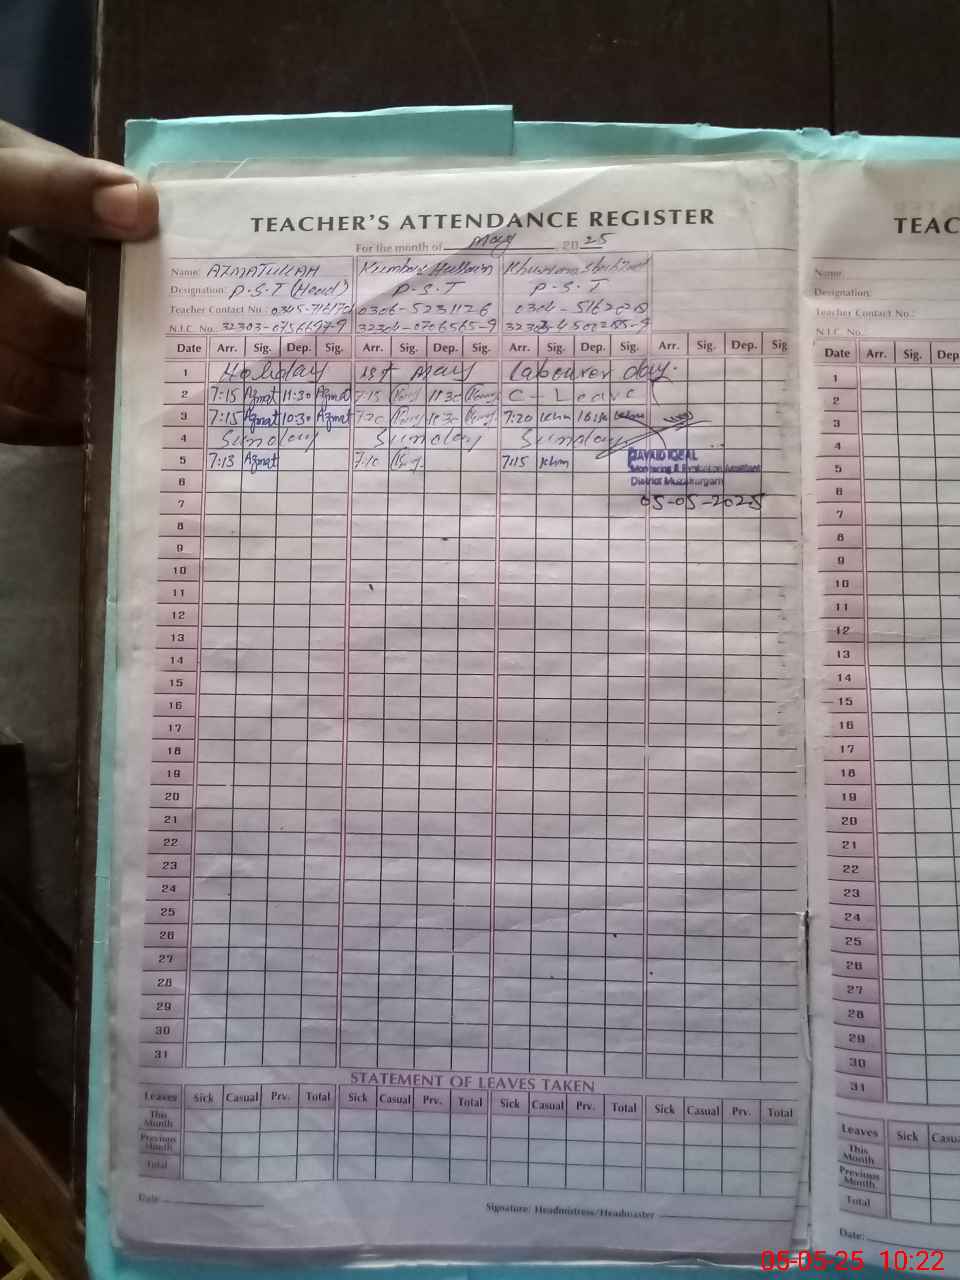 TEACHER'S ATTENDANCE REGISTER
For the month of May 2025
Name: AZMATULLAH Hussain
Designation: P.S.T (Head) P.S.T P.S.T
Teacher Contact No.: 0306-5231126
N.I.C. No.
Date Arr. Sig. Dep. Sig. Arr. Sig. Dep. Sig. Arr. Sig. Dep. Sig. Arr. Sig. Dep. Sig
1 Holiday 1st May Labourer day.
2 7:15 Azmat 11:30 Azmat 7:15 11:30 C-Leave
3 7:15 Azmat 10:30 Azmat 7:20 10:30 7:20 khm
4 Sunday Sunday Sunday
5 7:13 Azmat 7:10 7:15 khm
JAVAID IQBAL
Monitoring & Evaluation Assistant
District Muzaffargarh
05-05-2025
6
7
8
9
10
11
12
13
14
15
16
17
18
19
20
21
22
23
24
25
26
27
28
29
30
31
STATEMENT OF LEAVES TAKEN
Leaves Sick Casual Prv. Total Sick Casual Prv. Total Sick Casual Prv. Total Sick Casual Prv. Total
This Month
Previous Month
Total
Date
Signature: Headmistress/Headmaster
TEAC
Name:
Designation:
Teacher Contact No.:
N.I.C. No.
Date Arr. Sig. Dep
1
2
3
4
5
6
7
8
9
10
11
12
13
14
15
16
17
18
19
20
21
22
23
24
25
26
27
28
29
30
31
Leaves Sick Casu
This Month
Previous Month
Total
Date:
05-05-25 10:22